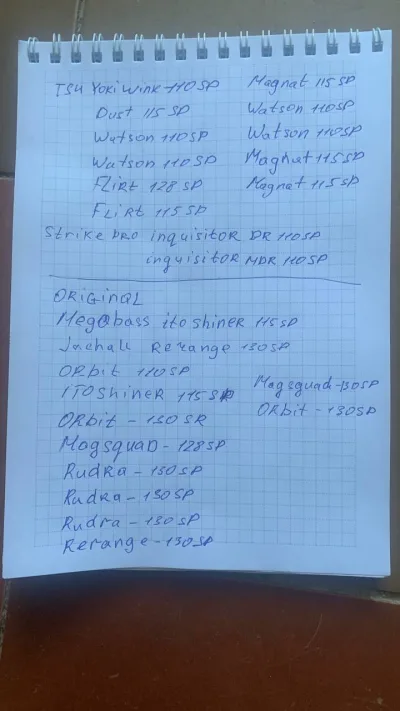 TSU YOKI Wink-110SP
Dust 115 SP
Watson 110SP
Watson 110SP
FLIRt 128 SP
FLIRt 115 SP
Magnat 115 SP
Watson 110SP
Watson 110SP
Magnat 115SP
Magnat 115SP
Strike PRO inquisitoR DR 110SP
inquisitoR MDR 110SP
ORiGinaL
Megabass ito shiner 115SP
Jackall Rerange 130SP
ORbit 110SP
ITO ShineR 115 SP
ORbit - 130 SR
MagsquaD - 128SP
RudRa - 130SP
RudRa - 130SP
Rudra - 130SP
Rerange - 130SP
Magsquad - 130SP
ORbit - 130SP